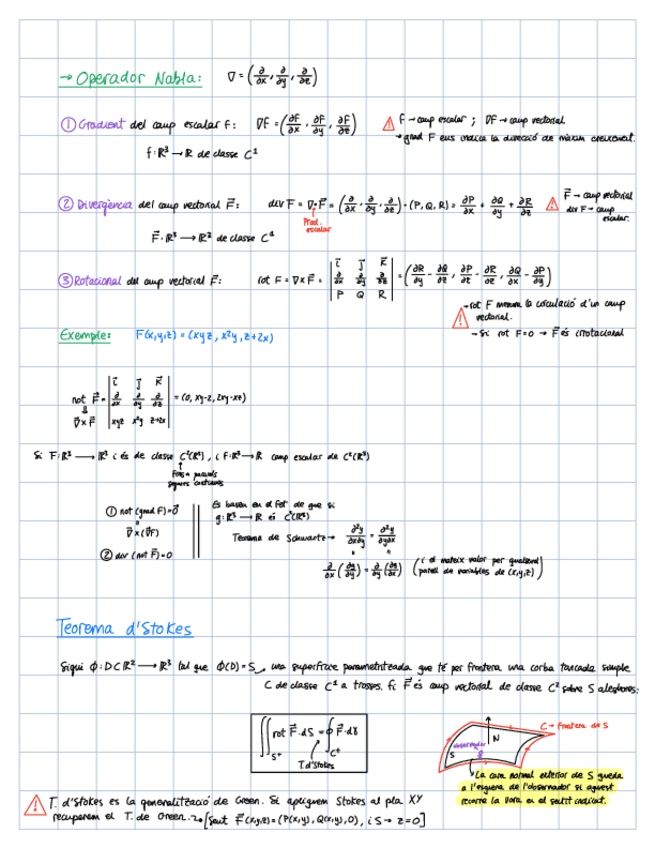 → Operador Nabla: ∇ = (∂/∂x, ∂/∂y, ∂/∂z)
① Gradient del camp escalar f: ∇F = (∂F/∂x, ∂F/∂y, ∂F/∂z)
f → camp escalar ; ∇F → camp vectorial
→ grad F ens indica la direcció de màxim creixement.
f: R³ → R de classe C¹
② Divergència del camp vectorial F⃗: div F = ∇·F⃗ = (∂/∂x, ∂/∂y, ∂/∂z)·(P, Q, R) = ∂P/∂x + ∂Q/∂y + ∂R/∂z
F⃗ → camp vectorial
div F → camp escalar.
Prod. escalar
F⃗: R³ → R³ de classe C¹
③ Rotacional del camp vectorial F⃗: rot F = ∇×F⃗ = | i⃗ j⃗ k⃗ ; ∂/∂x ∂/∂y ∂/∂z ; P Q R | = (∂R/∂y - ∂Q/∂z, ∂P/∂z - ∂R/∂x, ∂Q/∂x - ∂P/∂y)
→ rot F mesura la circulació d'un camp
vectorial.
→ Si rot F=0 → F⃗ és irrotacional
Exemple: F(x,y,z) = (xyz, x²y, z+2x)
rot F⃗ = | i⃗ j⃗ k⃗ ; ∂/∂x ∂/∂y ∂/∂z ; xyz x²y z+2x | = (0, xy-2, 2xy-xz)
∇⃗×F⃗
Si F: R³ → R³ i és de classe C²(R³), i f: R³ → R camp escalar de C²(R³)
parcials
segones contínues
① rot (grad F)=0⃗
∇⃗×(∇⃗F)
② div (rot F⃗)=0
Es basen en el fet de que si
g: R³ → R és C²(R³)
Teorema de Schwartz → ∂²g/∂x∂y = ∂²g/∂y∂x
∂/∂x (∂g/∂y) = ∂/∂y (∂g/∂x) (i el mateix valor per qualsevol
parell de variables de (x,y,z))
Teorema d'Stokes
Sigui ϕ: D⊂R² → R³ tal que ϕ(D)=S, una superfície parametritzada que té per frontera una corba tancada simple
C de classe C¹ a trossos. Si F⃗ és camp vectorial de classe C² sobre S aleshores:
∬_S+ rot F⃗·dS = ∮_C+ F⃗·dγ
T. d'Stokes
C → frontera de S
N
observador
S
La cara normal exterior de S queda
a l'esquerra de l'observador si aquest
recorre la vora en el sentit indicat.
T. d'Stokes és la generalització de Green. Si apliquem Stokes al pla XY
recuperem el T. de Green. → [Sent F⃗(x,y,z)=(P(x,y), Q(x,y), 0), i S → z=0]